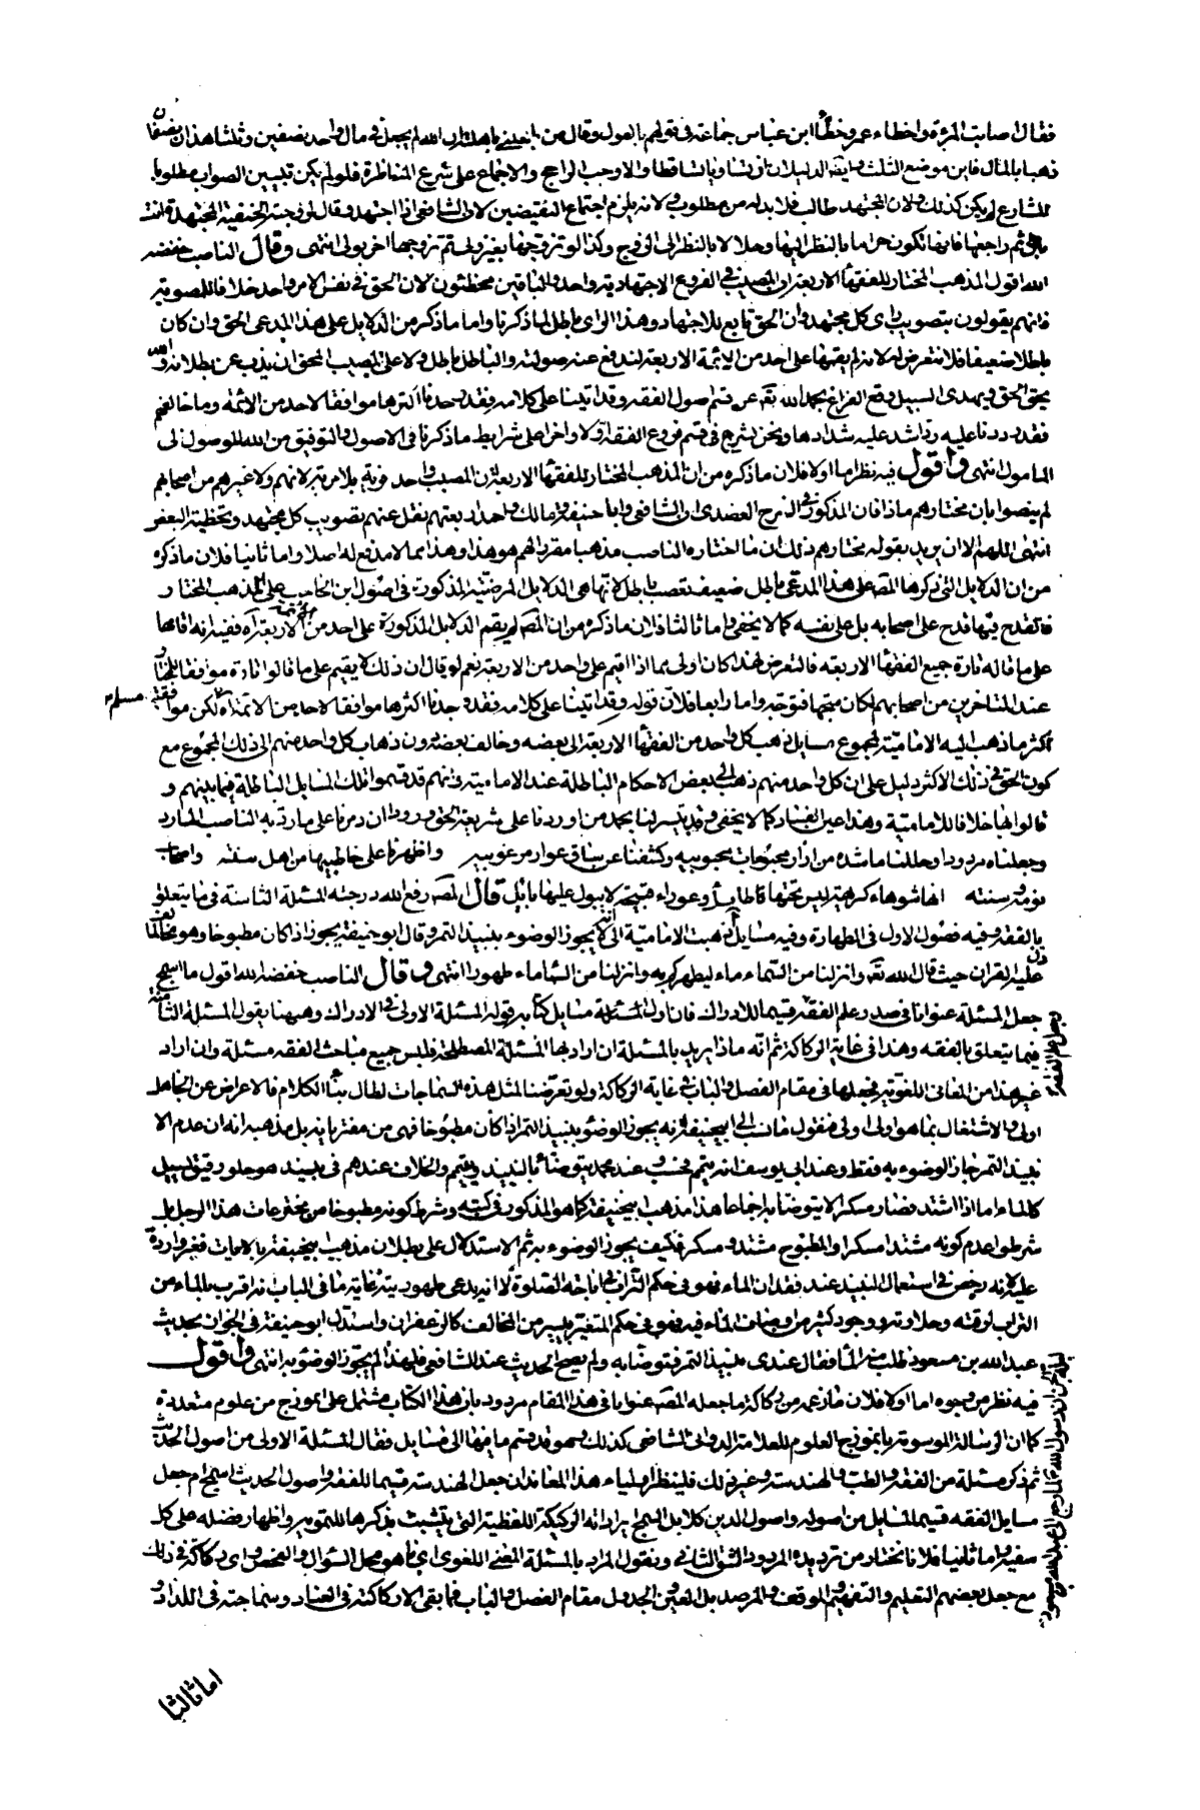 فقال اصابت المرءة واخطاء عمر وخطأ ابن عباس جماعة في قولهم بالعول وقال من باهلني باهلته ان الله لم يجعل في مال واحد نصفين وثلثا هذان نصفان
ذهبا بالمال فاين موضع الثلث وايضا الدليلان ان تساويا تساقطا والا وجب الراجح والاجماع على شرع المناظرة فلو لم يكن تبيين الصواب مطلوبا
للشارع لم يكن كذلك ولان المجتهد طالب فلا بد له من مطلوب ولانه يلزم اجتماع النقيضين لان الشافعي اذا اجتهد وقال لزوجته الحنفية المجتهدة انت
باين ثم راجعها فانها تكون حراما بالنظر اليها وحلالا بالنظر الى الزوج وكذا لو تزوجها بغير ولي ثم تزوجها اخر بولي انتهى وقال الناصب خفضه
الله اقول المذهب المختار للفقهاء الاربعة ان المصيب في الفروع الاجتهادية واحد والباقين مخطئون لان الحق في نفس الامر واحد خلافا للمصوبة
فانهم يقولون بتصويب راى كل مجتهد وان الحق تابع للاجتهاد وهذا الراى باطل لما ذكرنا واما ما ذكر من الدلايل على هذا المدعى الحق وان كان
باطلا ضعيفا فلا نتعرض له لانه لم يقمها على احد من الائمة الاربعة لندفع عنه صولته والباطل باطل ولا على المصيب المحق ان يذب عن بطلانه والله
يحق الحق ويهدى السبيل وقع الفراغ بحمد الله تعه عن قسم اصول الفقه وقد اتينا على كلامه فقد وجدنا اكثرها موافقا لاحد من الائمة وما خالفهم
فقد رددنا عليه رد اشد عليه شدادها ونحن نشرع في قسم فروع الفقه اولا واخرا على شرايط ما ذكرنا في الاصول والتوفيق من الله للوصول الى
المامول انتهى واقول فيه نظر اما اولا فلان ما ذكره من ان المذهب المختار للفقهاء الاربعة ان المصيب واحد فرية بلا مرية لانهم ولا غيرهم من اصحابهم
لم ينصوا بان مختارهم ماذا فان المذكور في الشرح العضدى ان الشافعي وابا حنيفة ومالك واحمد اربعتهم نقل عنهم تصويب كل مجتهد وتخطئة البعض
انتهى اللهم الا ان يريد بقوله مختارهم ذلك ان ما اختاره الناصب مذهبا مقررا لهم هو هذا وهذا مما لا مدفع له اصلا واما ثانيا فلان ما ذكره
من ان الدلايل التي ذكرها المص على هذا المدعى باطل ضعيف تعصب باطل لانها هي الدلايل المرضية المذكورة في اصول ابن الحاجب على المذهب المختار و
فالقدح فيها قدح على اصحابه بل على نفسه كما لا يخفى واما ثالثا فلان ما ذكره من ان المصه لم يقم الدلايل المذكورة على احد من الائمة الاربعة اه ففيه انه اقامها
على ما قاله تارة جميع الفقهاء الاربعة فالتعرض لهذا كان اولى مما اذا اقيم على واحد من الاربعة نعم لو قال ان ذلك لا يقيم على ما قالوا تارة موافقا للمختار
عند المتاخرين من اصحابهم لكان متجها فتوجه واما رابعا فلان قوله وقد اتينا على كلامه فقد وجدنا اكثرها موافقا لاحد من الائمة اه لكن موافقة مسلم
اكثر ما ذهب اليه الامامية لمجموع مسايل ذهب كل واحد من الفقهاء الاربعة الى بعضه وخالف بعضه دون ذهاب كل واحد منهم الى ذلك المجموع مع
كون الحق في ذلك الاكثر دليل على ان كل واحد منهم ذهب الى بعض الاحكام الباطلة عند الامامية وانهم قد قسموا تلك المسايل الباطلة فيما بينهم و
قالوا بها خلافا للامامية وهذا عين الفساد كما لا يخفى وقد تيسر لنا بحمد من اوردنا على شريعة الحق ورود ان دمرنا على ما ردّ به الناصب المارد
وجعلناه مردودا وحللنا ما شده من ازار مجنوبات محبوبيه وكشفنا عن ساقي عوار مرغوبيه واظهرنا على خاطبيها من اهل سنته واصحاب
نومه وسنته انها شوهاء كريهة ليس تحتها طائل وعوراء قبيحة لا يبول عليها بائل قال المصه رفع الله درجته المسئلة الثامنة في ما يتعلق
بالفقه وفيه فصول الاول في الطهارة وفيه مسايل آ ذهبت الامامية الى انه لا يجوز الوضوء بنبيذ التمر وقال ابو حنيفة يجوز اذا كان مطبوخا وهو مخالف لما
دل عليه القران حيث قال الله تعه وانزلنا من السماء ماء ليطهركم به وانزلنا من السماء ماء طهورا انتهى وقال الناصب خفضه الله اقول ما اسمج
جعل المسئلة عنوانا في صدر علم الفقه قسيما للادراك فان اول المسئلة مسايل كتابه قوله المسئلة الاولى في الادراك وهيهنا يقول المسئلة الثامنة
وجعل علم الفقه
فيما يتعلق بالفقه وهذا في غاية الركاكة ثم انه ماذا يريد بالمسئلة ان اراد بها المسئلة المصطلحة فليس جميع مباحث الفقه مسئلة وان اراد
غير هذا من المعاني اللغوية فجعلها في مقام الفصل والباب في غاية الركاكة ولو تعرضنا لمثل هذه السماجات لطال بنا الكلام فالاعراض عن الجاهل
اولى والاشتغال بما هو اولى اولى فنقول ما نسب الى ابيحنيفة انه يجوز الوضوء بنبيذ التمر اذا كان مطبوخا فهى من مفترياته بل مذهبه انه ان عدم الا
نبيذ التمر جاز الوضوء به فقط وعند ابى يوسف انه يتيمم فحسب وعند محمد يتوضأ بالنبيذ ويتيمم والخلاف عندهم في نبيذ هو حلو رقيق يسيل
كالماء اما اذا اشتد فصار مسكرا لا يتوضأ به اجماعا هذا مذهب ابيحنيفة كما هو المذكور في كتبه وشرط كونه مطبوخا من مخترعات هذا الرجل بل
شرطوا عدم كونه مشتدا مسكرا والمطبوخ مشتد ومسكر فكيف يجوز الوضوء به ثم الاستدلال على بطلان مذهب ابيحنيفة بالايات فغير واردة
عليه لانه رخص في استعمال النبيذ عند فقدان الماء فهو في حكم التراب في اباحة الصلوة لا انه يدعى طهوريته غاية ما في الباب انه اقرب بالماء من
التراب لرقته وحلاوته ووجود كثير من اوصاف الماء فيه فهو في حكم المتغير بيسير من المخالف كالزعفران واستدل ابو حنيفة في الجواز بحديث
عبد الله بن مسعود طلب منه الماء فقال عندى نبيذ التمر فتوضأ به ولم يصح الحديث عند الشافعي فلهذا لم يجوز الوضوء به انتهى واقول
ليلة الجن ان رسول الله جاء من عبد الله بن مسعود
فيه نظر من وجوه اما اولا فلان ما زعمه من ركاكة ما جعله المصه عنوانا في هذا المقام مردود بان هذا الكتاب مشتمل على نموذج من علوم متعددة
كما ان الرسالة الموسومة بانموذج العلوم للعلامة الدواني الشافعى كذلك وهو قد قسم ما فيها الى مسايل فقال المسئلة الاولى من اصول الحديث
ثم ذكر مسئلة من الفقه والطب والهندسة وغير ذلك فلينظر اولياء هذا المعاند ان جعل الهندسة قسيما للفقه واصول الحديث اسمج ام جعل
مسايل الفقه قسيما لمسايل من اصوله واصول الدين كلا بل السمج ايراداته الركيكة اللفظية التي يتشبث بذكرها للتمويه واظهار فضله على كل
سفيه واما ثانيا فلانا نختار من ترديده المردود الشق الثانى ونقول المراد بالمسئلة المعنى اللغوى اى ما هو محل السؤال والتفحص واى ركاكة في ذلك
مع جعل بعضهم التعليم والتفهيم والموقف والمرصد بل العين والجدول مقام الفصل والباب فما بقى الا ركاكته في العناد وسماجته في اللداد
اما ثالثا